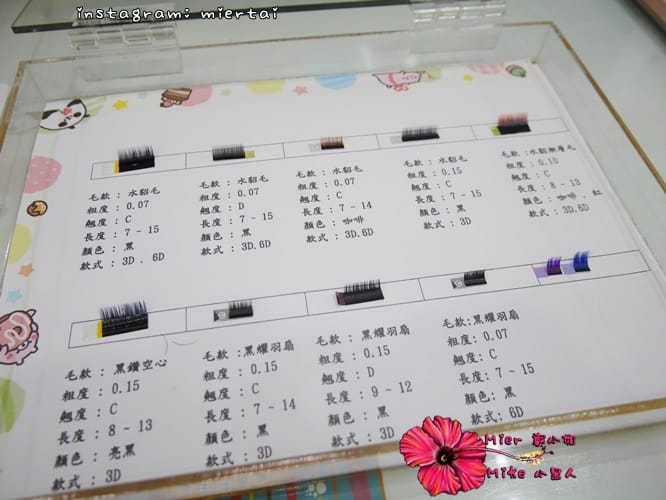 instagram: miertai
毛款 : 水貂毛
粗度 : 0.07
翹度 : C
長度 : 7 ~ 15
顏色 : 黑
款式 : 3D . 6D
毛款 : 水貂毛
粗度 : 0.07
翹度 : D
長度 : 7 ~ 15
顏色 : 黑
款式 : 3D.6D
毛款 : 水貂毛
粗度 : 0.07
翹度 : C
長度 : 7 ~ 14
顏色 : 咖啡
款式 : 3D.6D
毛款 : 水貂毛
粗度 : 0.15
翹度 : C
長度 : 7 ~ 15
顏色 : 黑
款式 : 3D
毛款 : 水貂漸層毛
粗度 : 0.10
翹度 : C
長度 : 8 ~ 13
顏色 : 咖啡 . 紅
款式 : 3D.5D
毛款 : 黑鑽空心
粗度 : 0.15
翹度 : C
長度 : 8 ~ 13
顏色 : 亮黑
款式 : 3D
毛款 :黑耀羽扇
粗度 : 0.15
翹度 : C
長度 : 7 ~ 14
顏色 : 黑
款式 : 3D
毛款 :黑耀羽扇
粗度 : 0.15
翹度 : D
長度 : 9 ~ 12
顏色 : 黑
款式 : 3D
毛款:黑耀羽扇
粗度: 0.07
翹度: C
長度: 7 ~ 15
顏色: 黑
款式: 6D
Mier
Mike 小星人